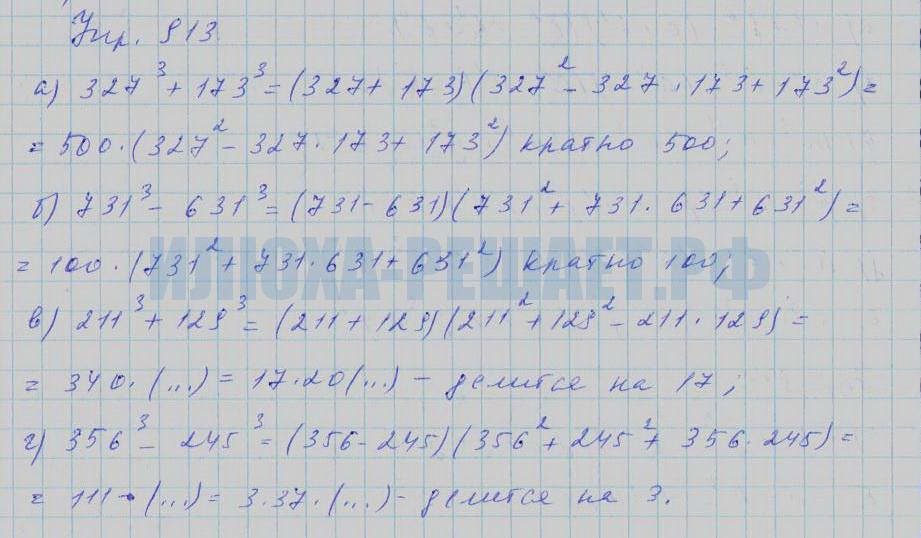 Упр. 913
а) 327³ + 173³ = (327 + 173)(327² - 327 · 173 + 173²) =
= 500 · (327² - 327 · 173 + 173²) кратно 500;
б) 731³ - 631³ = (731 - 631)(731² + 731 · 631 + 631²) =
= 100 · (731² + 731 · 631 + 631²) кратно 100;
ИЛЮХА-РЕШАЕТ.РФ
в) 211³ + 129³ = (211 + 129)(211² + 129² - 211 · 129) =
= 340 · (...) = 17 · 20(...) - делится на 17;
г) 356³ - 245³ = (356 - 245)(356² + 245² + 356 · 245) =
= 111 · (...) = 3 · 37 · (...) - делится на 3.